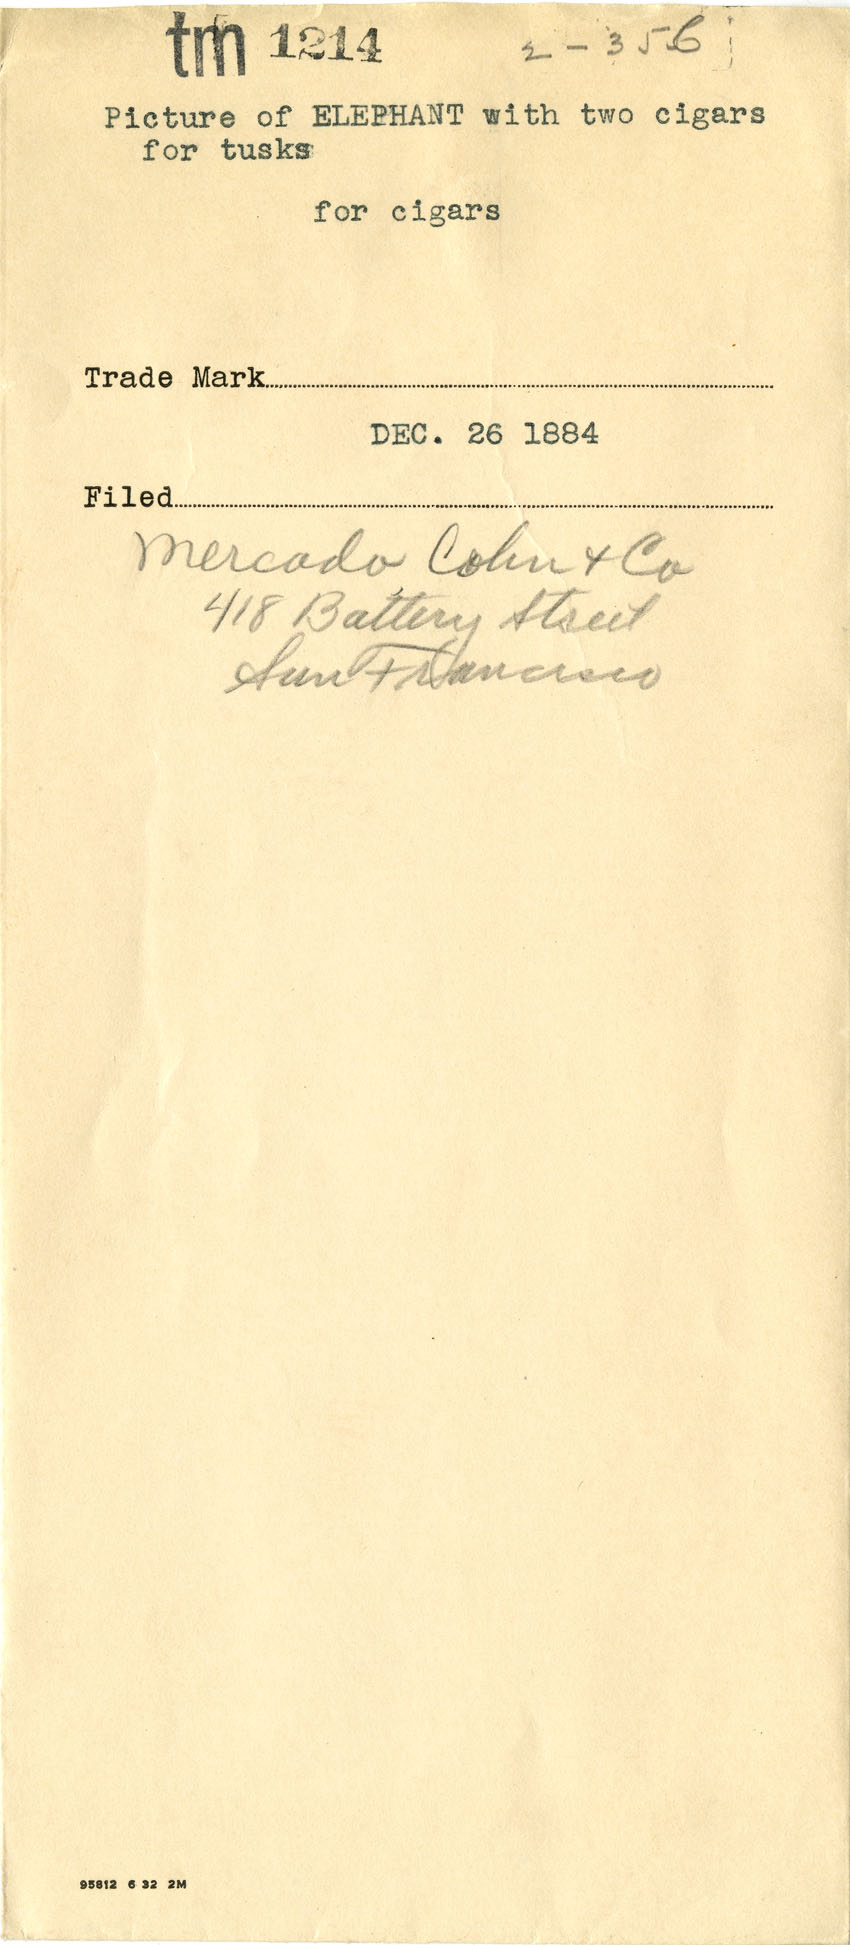 tm 1214 2-356
Picture of ELEPHANT with two cigars
for tusks
for cigars
Trade Mark
DEC. 26 1884
Filed
Mercado, Cohn & Co
418 Battery Street
San Francisco
95812 6 32 2M